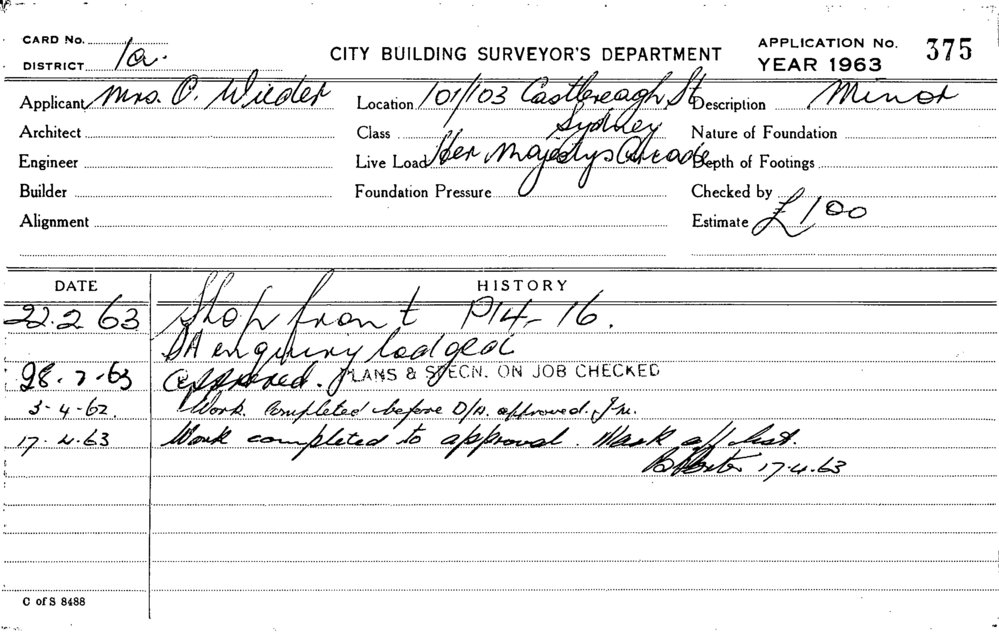 CARD No.
DISTRICT 1a.
CITY BUILDING SURVEYOR'S DEPARTMENT
APPLICATION No. 375
YEAR 1963
Applicant Mrs. O. Wieder
Location 101/103 Castlereagh St
Sydney
Description Minor
Architect
Class
Nature of Foundation
Engineer
Live Load Her Majestys Arcade
Depth of Footings
Builder
Foundation Pressure
Checked by
Alignment
Estimate £100
DATE
HISTORY
22.2 63 Shop front P14-16.
DA enquiry lodged
28.2.63 Approved. PLANS & SPECN. ON JOB CHECKED
3-4-62. Work completed before D/A. approved.
17.4.63 Work completed to approval. Mark off list.
17.4.63
C of S 8488